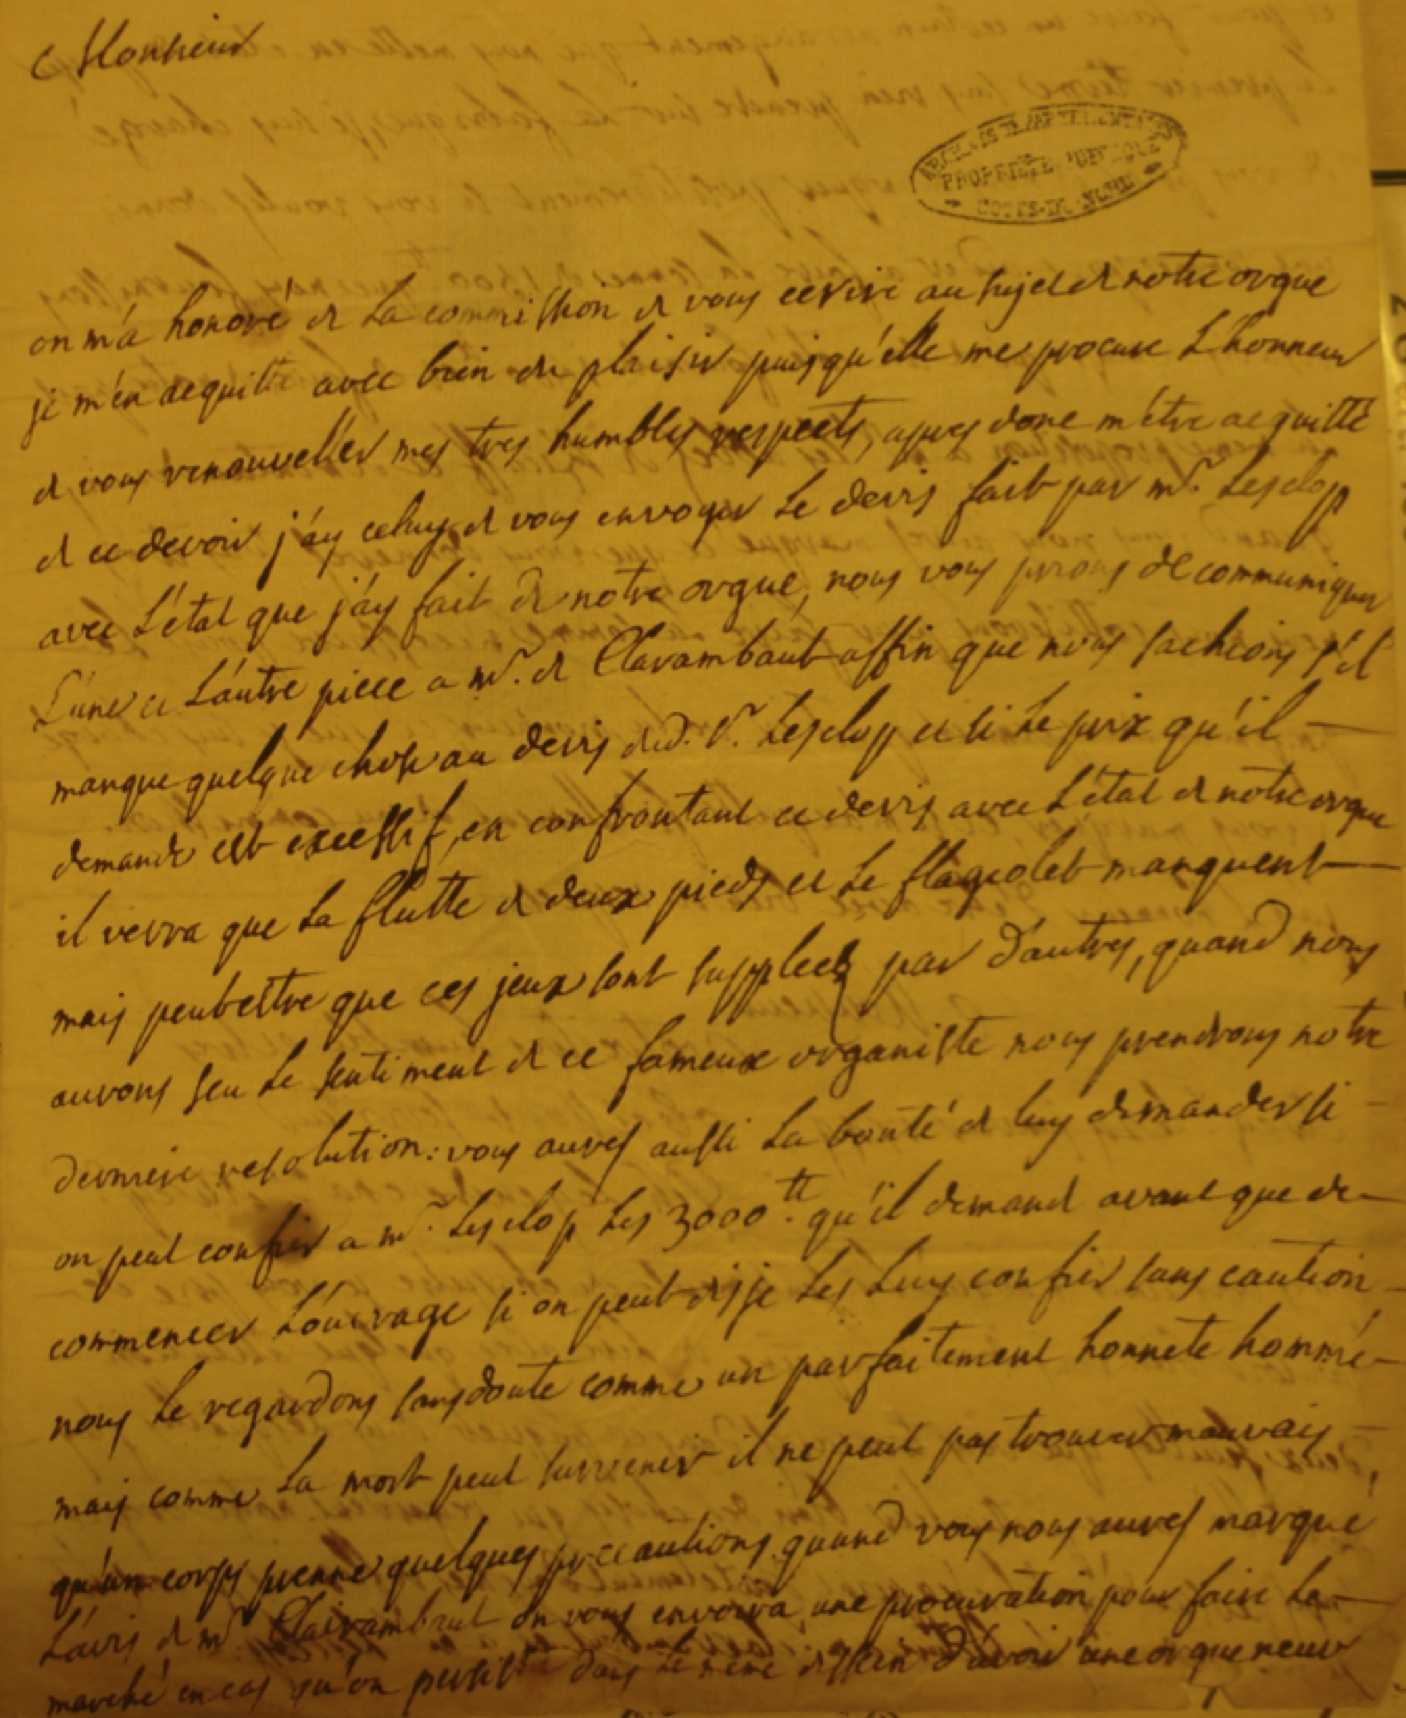 Monsieur
ARCHIVES DEPARTEMENTALES
PROPRIÉTÉ PUBLIQUE
COTES-DU-NORD
on m'a honoré de La commission de vous ecrire au sujet de notre orgue
je m'en acquitte avec bien du plaisir puisqu'elle me procure L'honneur
de vous renouveller mes tres humbles respects, apres donc m'etre acquitté
de ce devoir j'ay celuy de vous envoyer Le devis fait par mr. Lesclop
avec L'état que j'ay fait de notre orgue, nous vous prions de communiquer
L'une et L'autre piece a mr. de Clavambaut affin que nous sachions s'il
manque quelque chose au devis dud. Sr. Lesclop et si Le prix qu'il
demande est excessif, en confrontant ce devis avec L'état de notre orgue
il verra que La flutte de deux pieds et Le flageolet manquent
mais peutestre que ces jeux sont suppleez par d'autres, quand nous
aurons seu Le sentiment de ce fameux organiste nous prendrons notre
derniere resolution: vous aures aussi La bonté de luy demander si
on peut confier a mr. Lesclop Les 3000tt. qu'il demand avant que de
commencer L'ouvrage si on peut disje Les Luy confier sans caution
nous Le regardons sans doute comme un parfaitement honnete homme
mais comme La mort peut survenir il ne peut pas trouver mauvais
qu'un corps prenne quelques precautions quand vous nous aures marqué
L'avis de mr. Clairambaut on vous envoira une procuration pour faire Le
marché en cas qu'on persiste dans Le meme dessein d'avoir une orgue neuve